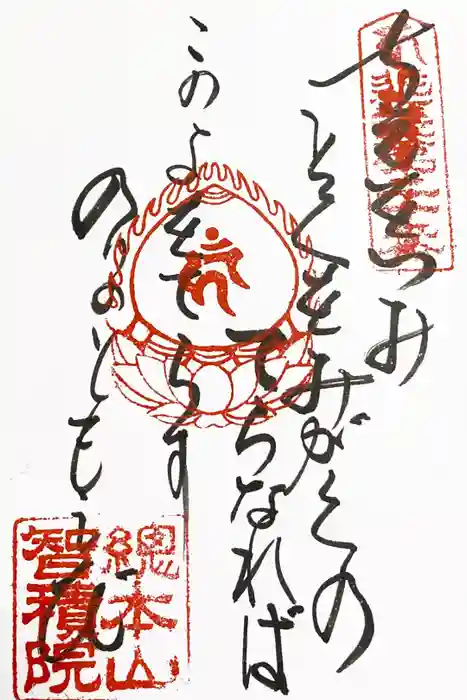 ちゑをつみ
とくをみがくの
てらなれば
このよをてらす
のりのともし
總本山
智積院